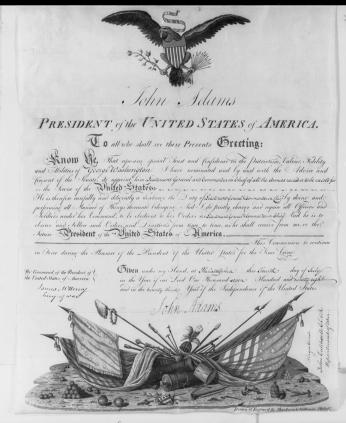 John Adams
PRESIDENT of the UNITED STATES of AMERICA.
To all who shall see these Presents Greeting:
Know Ye, That reposing special Trust and Confidence in the Patriotism, Valour, Fidelity
and Abilities of George Washington I have nominated and by and with the Advice and
Consent of the Senate do appoint him Lieutenant General and Commander in Chief of all the Armies raised or to be raised for
the Service of the United States
He is therefore carefully and diligently to discharge the Duty of Lieutenant General and Commander in Chief by doing and
performing all Manner of Things thereunto belonging. And I do strictly charge and require all Officers and
Soldiers under his Command, to be obedient to his Orders as Lieutenant General and Commander in Chief. And he is to
observe and follow such Orders, and Directions from time to time, as he shall receive from me, or the
future President of the United States of America
This Commission to continue
in Force during the Pleasure of the President of the United States for the Time being.
By Command of the President of the United States of America
James McHenry
Secy of war
Given under my Hand, at Philadelphia this fourth day of July
in the Year of our Lord One thousand seven Hundred and ninety eight
and in the twenty third Year of the Independence of the United States
John Adams
Drawn & Engraved by Philad.